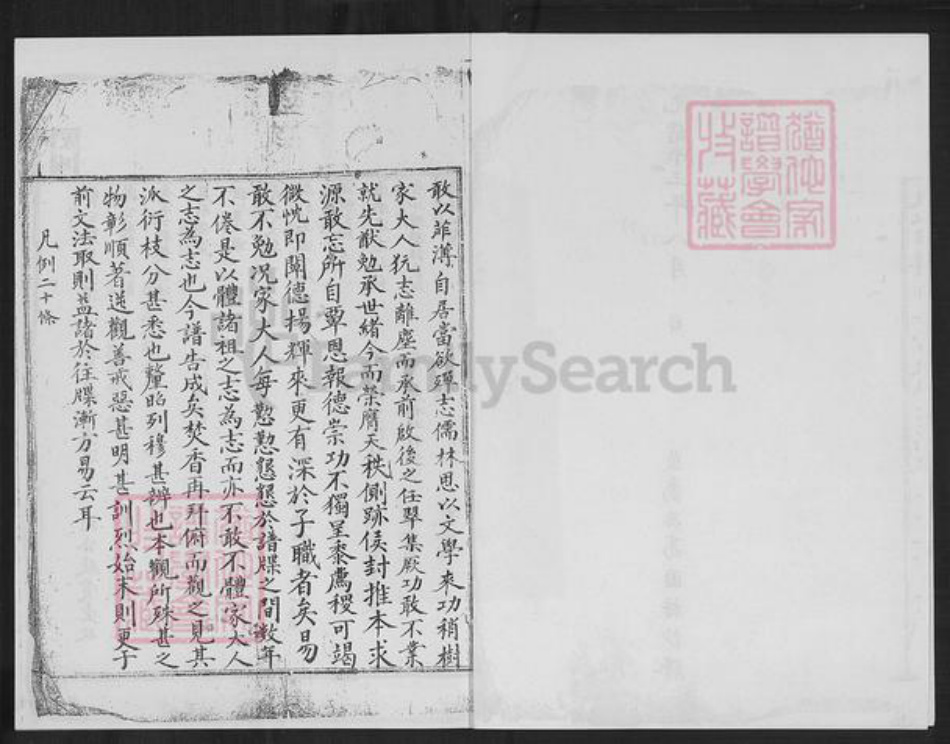 敢以菲薄自居當欲殫志儒林思以文學來功稍樹
家大人犹志離塵而承前啟後之任畢集厥功敢不業
就先猷勉承世緒今而榮膺天秩側跡侯封推本求
源敢忘所自覃恩報德崇功不獨呈黍薦稷可竭
微忱即闡德揚輝來更有深於子職者矣易
敢不勉况家大人每懃懃懇懇於譜牒之間数年
不倦是以體諸祖之志為志而亦不敢不體家大人
之志為志也今譜告成矣焚香再拜俯而觀之見其
派衍枝分甚悉也釐昭列穆甚辨也本觀所殊甚之
物彰順著逆觀善戒惡甚明甚訓烈始末則更于
前文法取則益諸於往牒漸方易云耳
凡例二十條
猶他家
譜學會
收藏
FamilySearch